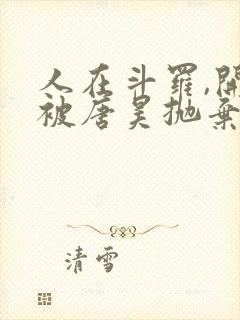 人在斗羅,開
被唐昊抛棄
清雪